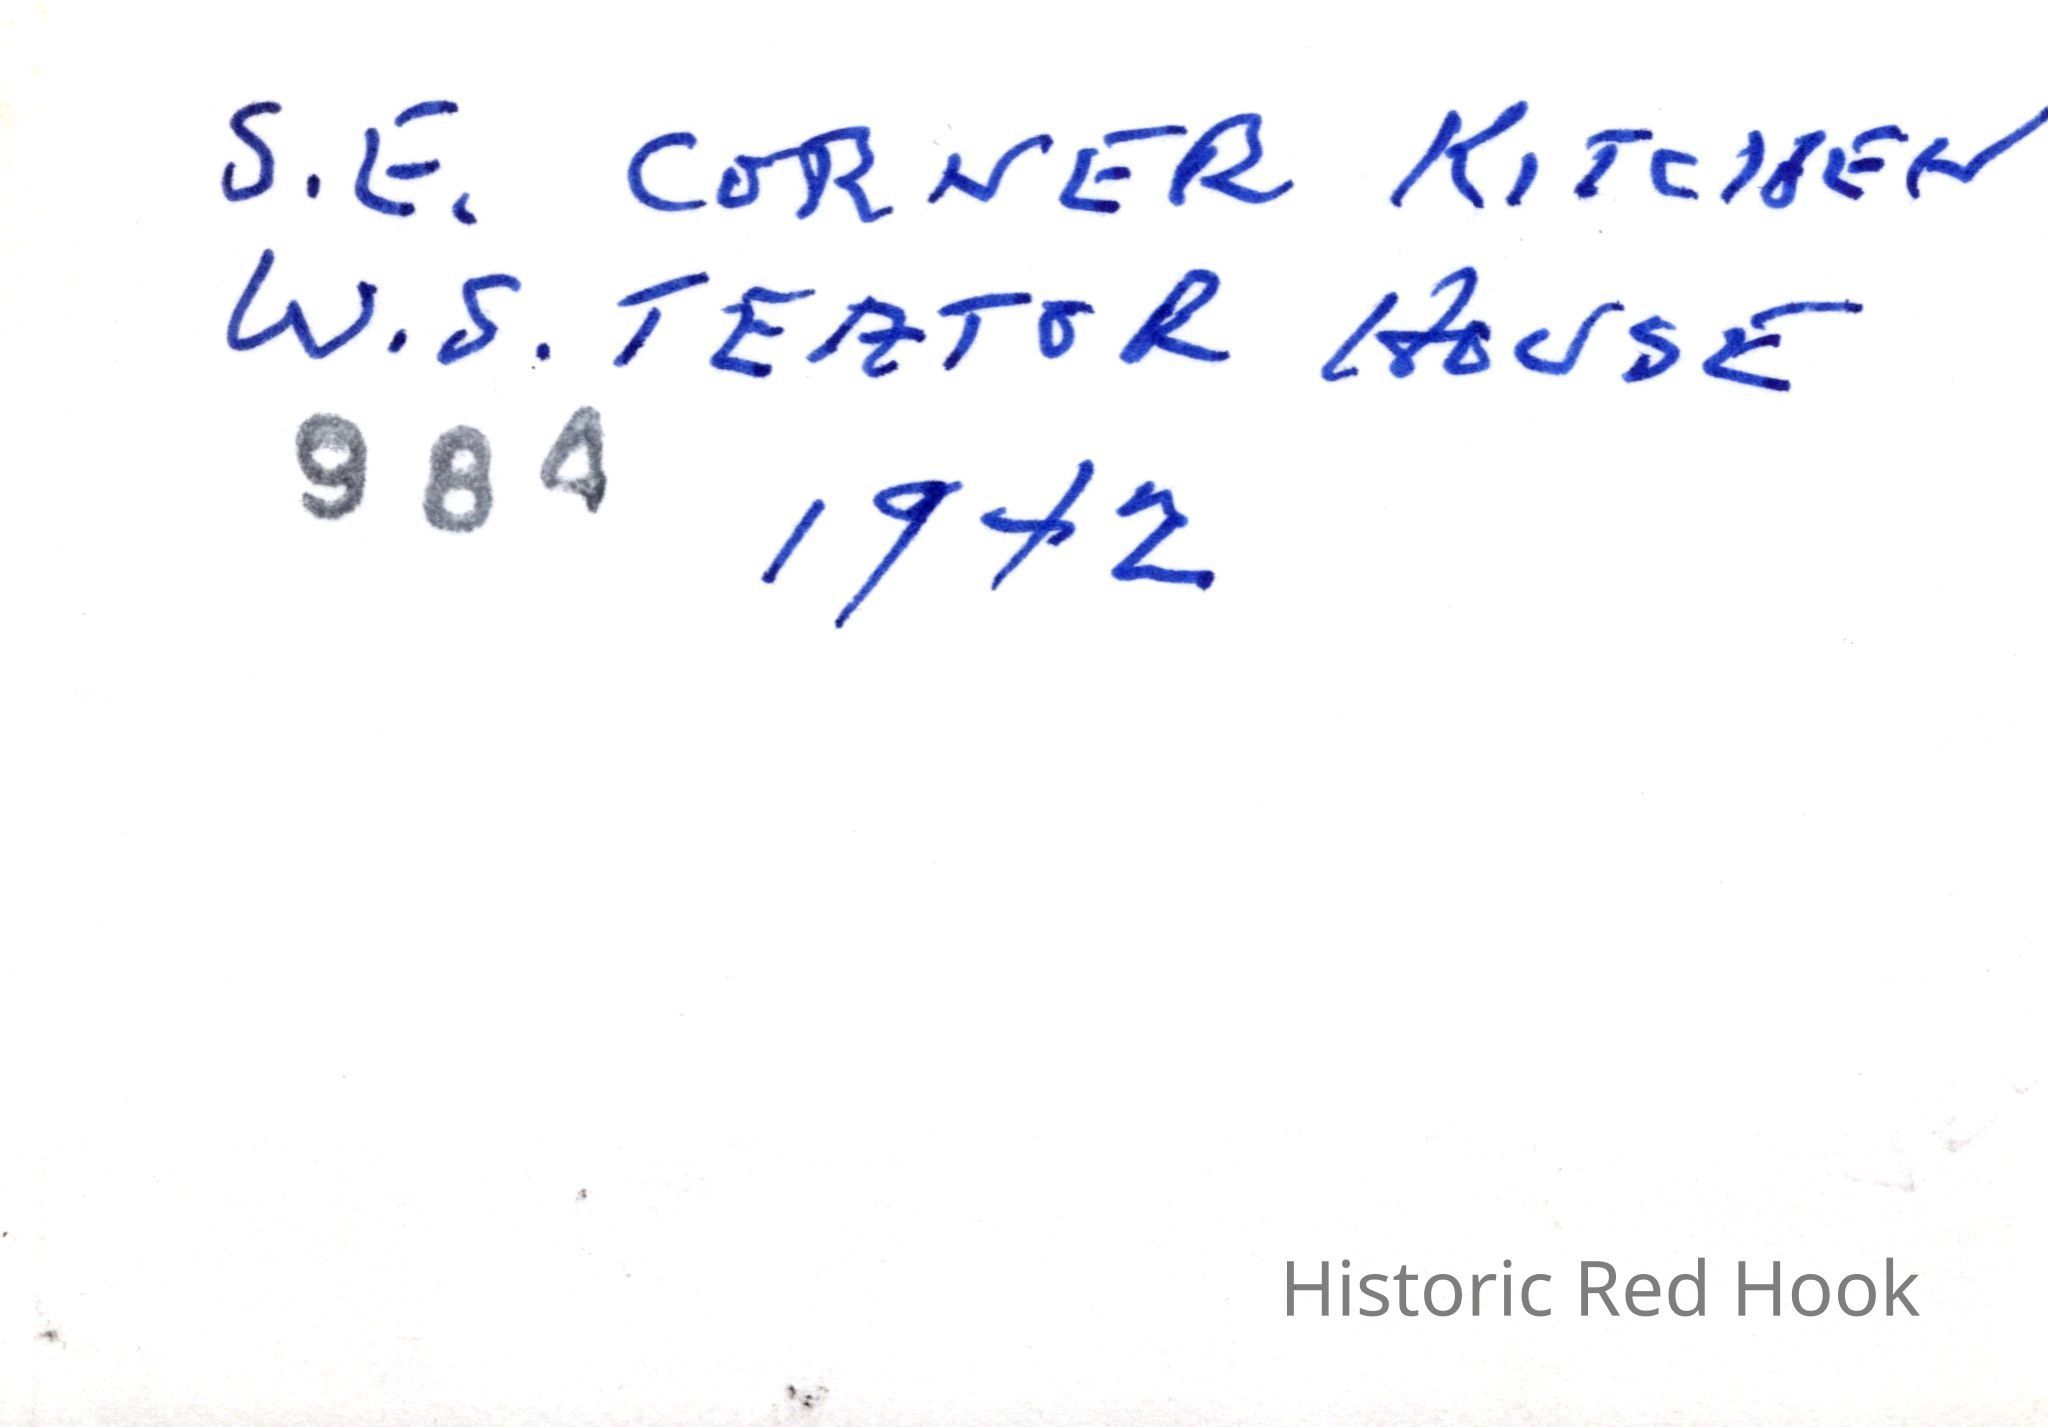 S.E. CORNER KITCHEN
W.S. TEATOR HOUSE
984
1942
Historic Red Hook